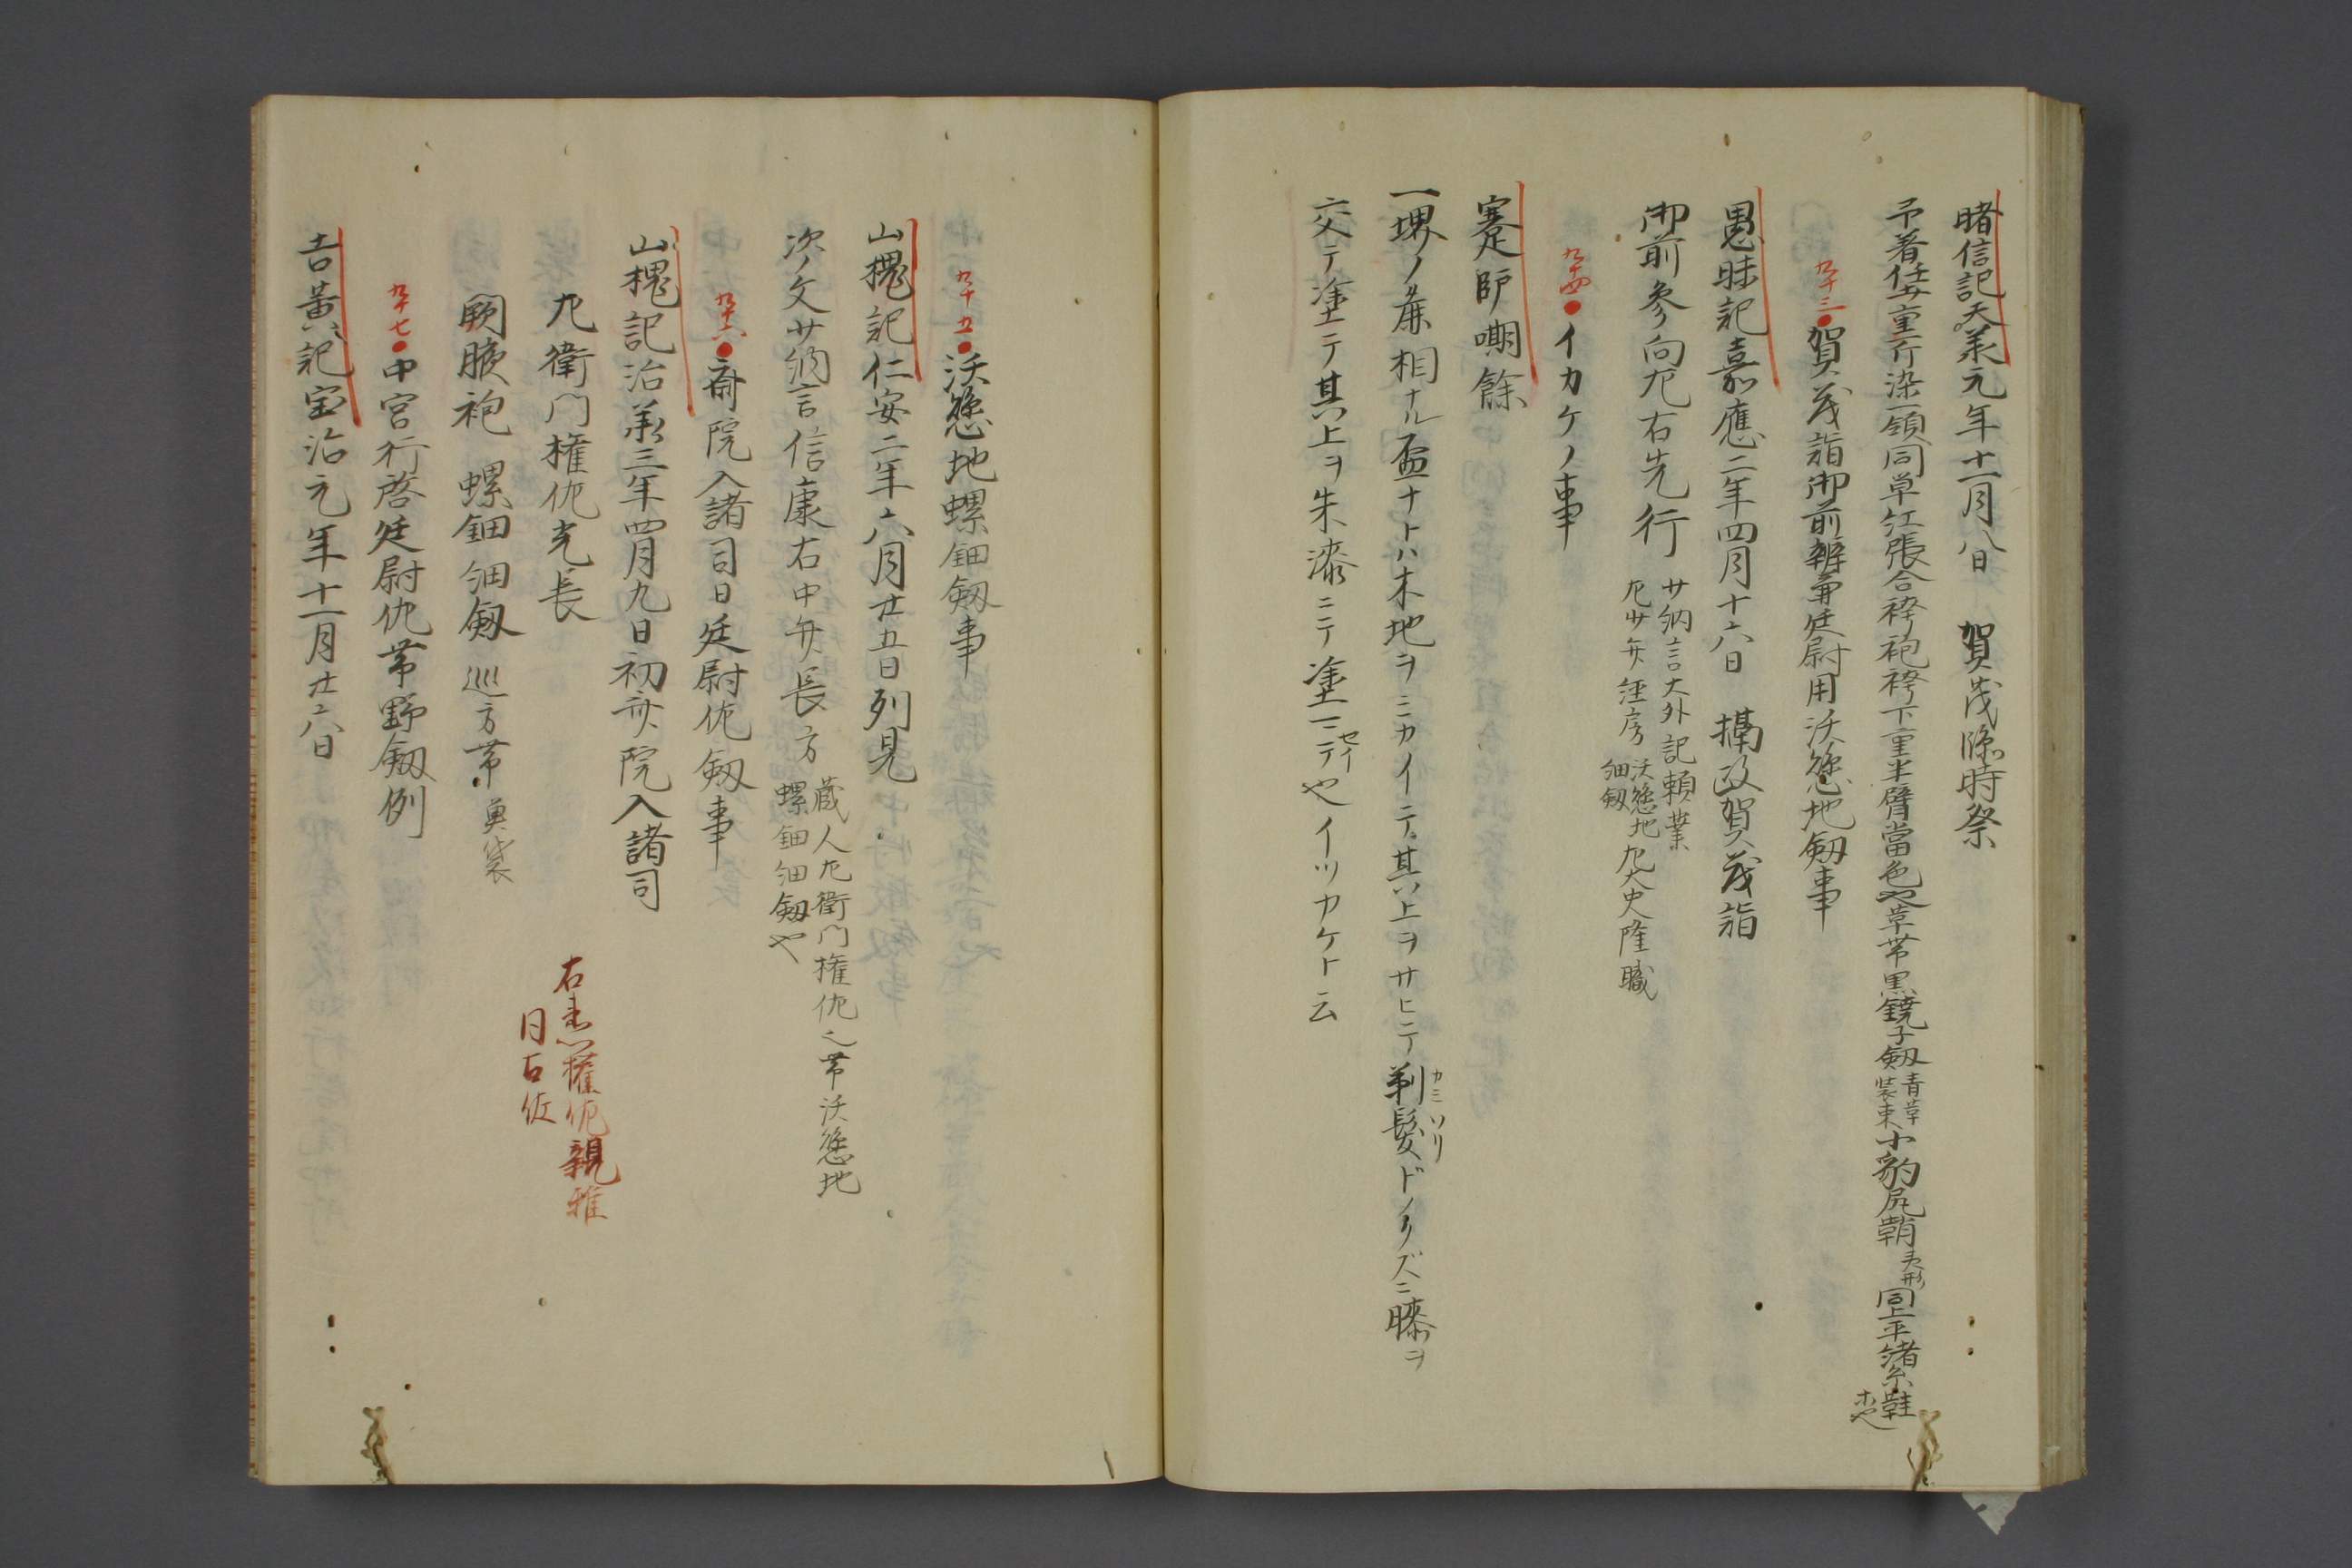 睹信記天承元年十一月八日　賀茂臨時祭
予着任女重斤染一領同単紅張合袴袍袴下重半臂當色也革帯黒鐃子剱青革装束小豹尻鞘夷形同上平緒糸鞋ホ也
九十三●賀茂詣御前辨兼廷尉用沃懸地剱事
愚昧記嘉應二年四月十六日　攝政賀茂詣
御前参向左右先行　廿納言大外記頼業
左廿弁経房沃懸地細剱左大史隆職
九十四●イカケノ事
蹇足師嘲餘
一堺ノ麁相ナル盃ナトハ木地ヲミカイテ其上ヲサヒテ剃髪カミソリドノリズニ膝ヲ
交テ塗テ其上ヲ朱漆ニテ塗ニテセイ也イツカケト云
九十五●沃懸地螺鈿剱事
山槐記仁安二年六月廿五日列見
次ノ文廿納言信康右中弁長方　蔵人左衛門権佐之帯沃懸地
螺鈿細剱也
九十六●斎院入諸司日廷尉佐剱事
山槐記治承三年四月九日初斎院入諸司
左衛門権佐光長
右衛権佐親雅
同右佐
闕腋袍　螺鈿細剱　巡方帯　奥袋
九十七●中宮行啓廷尉佐帯野剱例
吉黄記宝治元年十一月廿六日